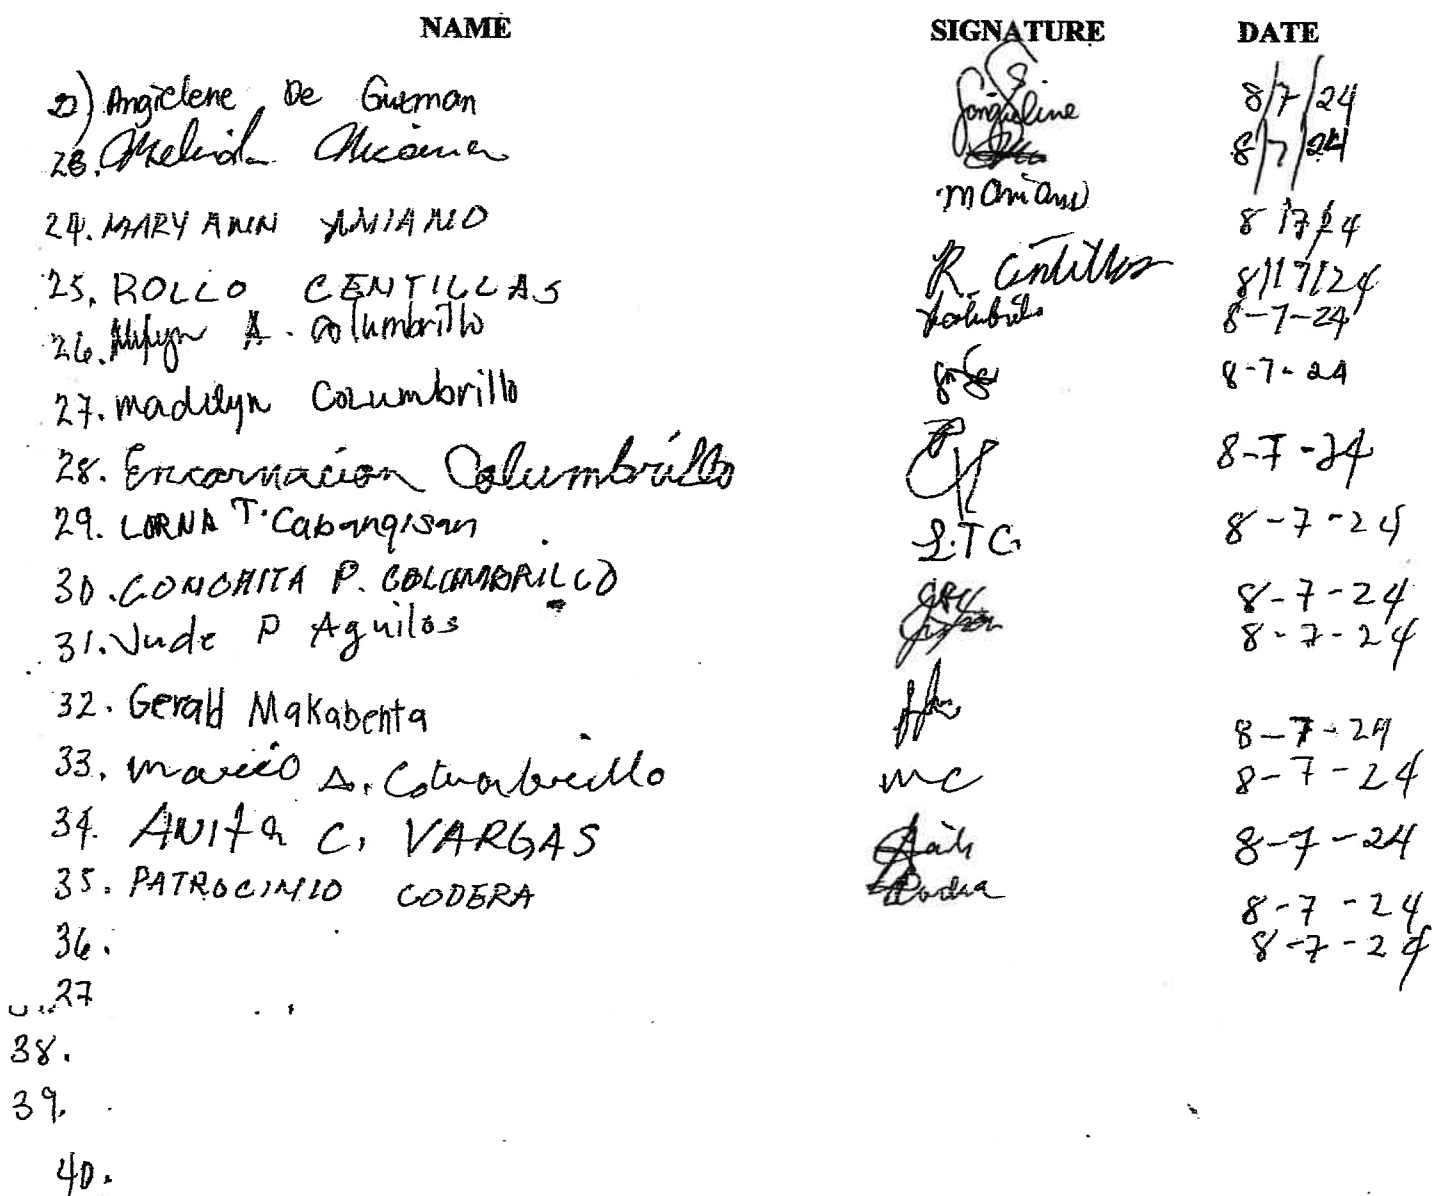 NAME SIGNATURE DATE
Angielene De Guzman 8/7/24
23. 8/7/24
24. MARY ANN AMIANO 8/7/24
25. ROLLO CENTILLAS R. Centillas 8/17/24
26. A. Columbrillo 8-7-24
27. Madilyn Columbrillo 8-7-24
28. Encarnacion Columbrillo 8-7-24
29. LORNA T. Cabangisan L.T.C. 8-7-24
30. CONCHITA P. COLUMBRILLO 8-7-24
31. Jude P Aguilos 8-7-24
32. Gerald Makabenta 8-7-24
33. Mario A. Columbrillo MC 8-7-24
34. ANITA C. VARGAS 8-7-24
35. PATROCINIO CODERA 8-7-24
36. 8-7-24
27
38.
39.
40.